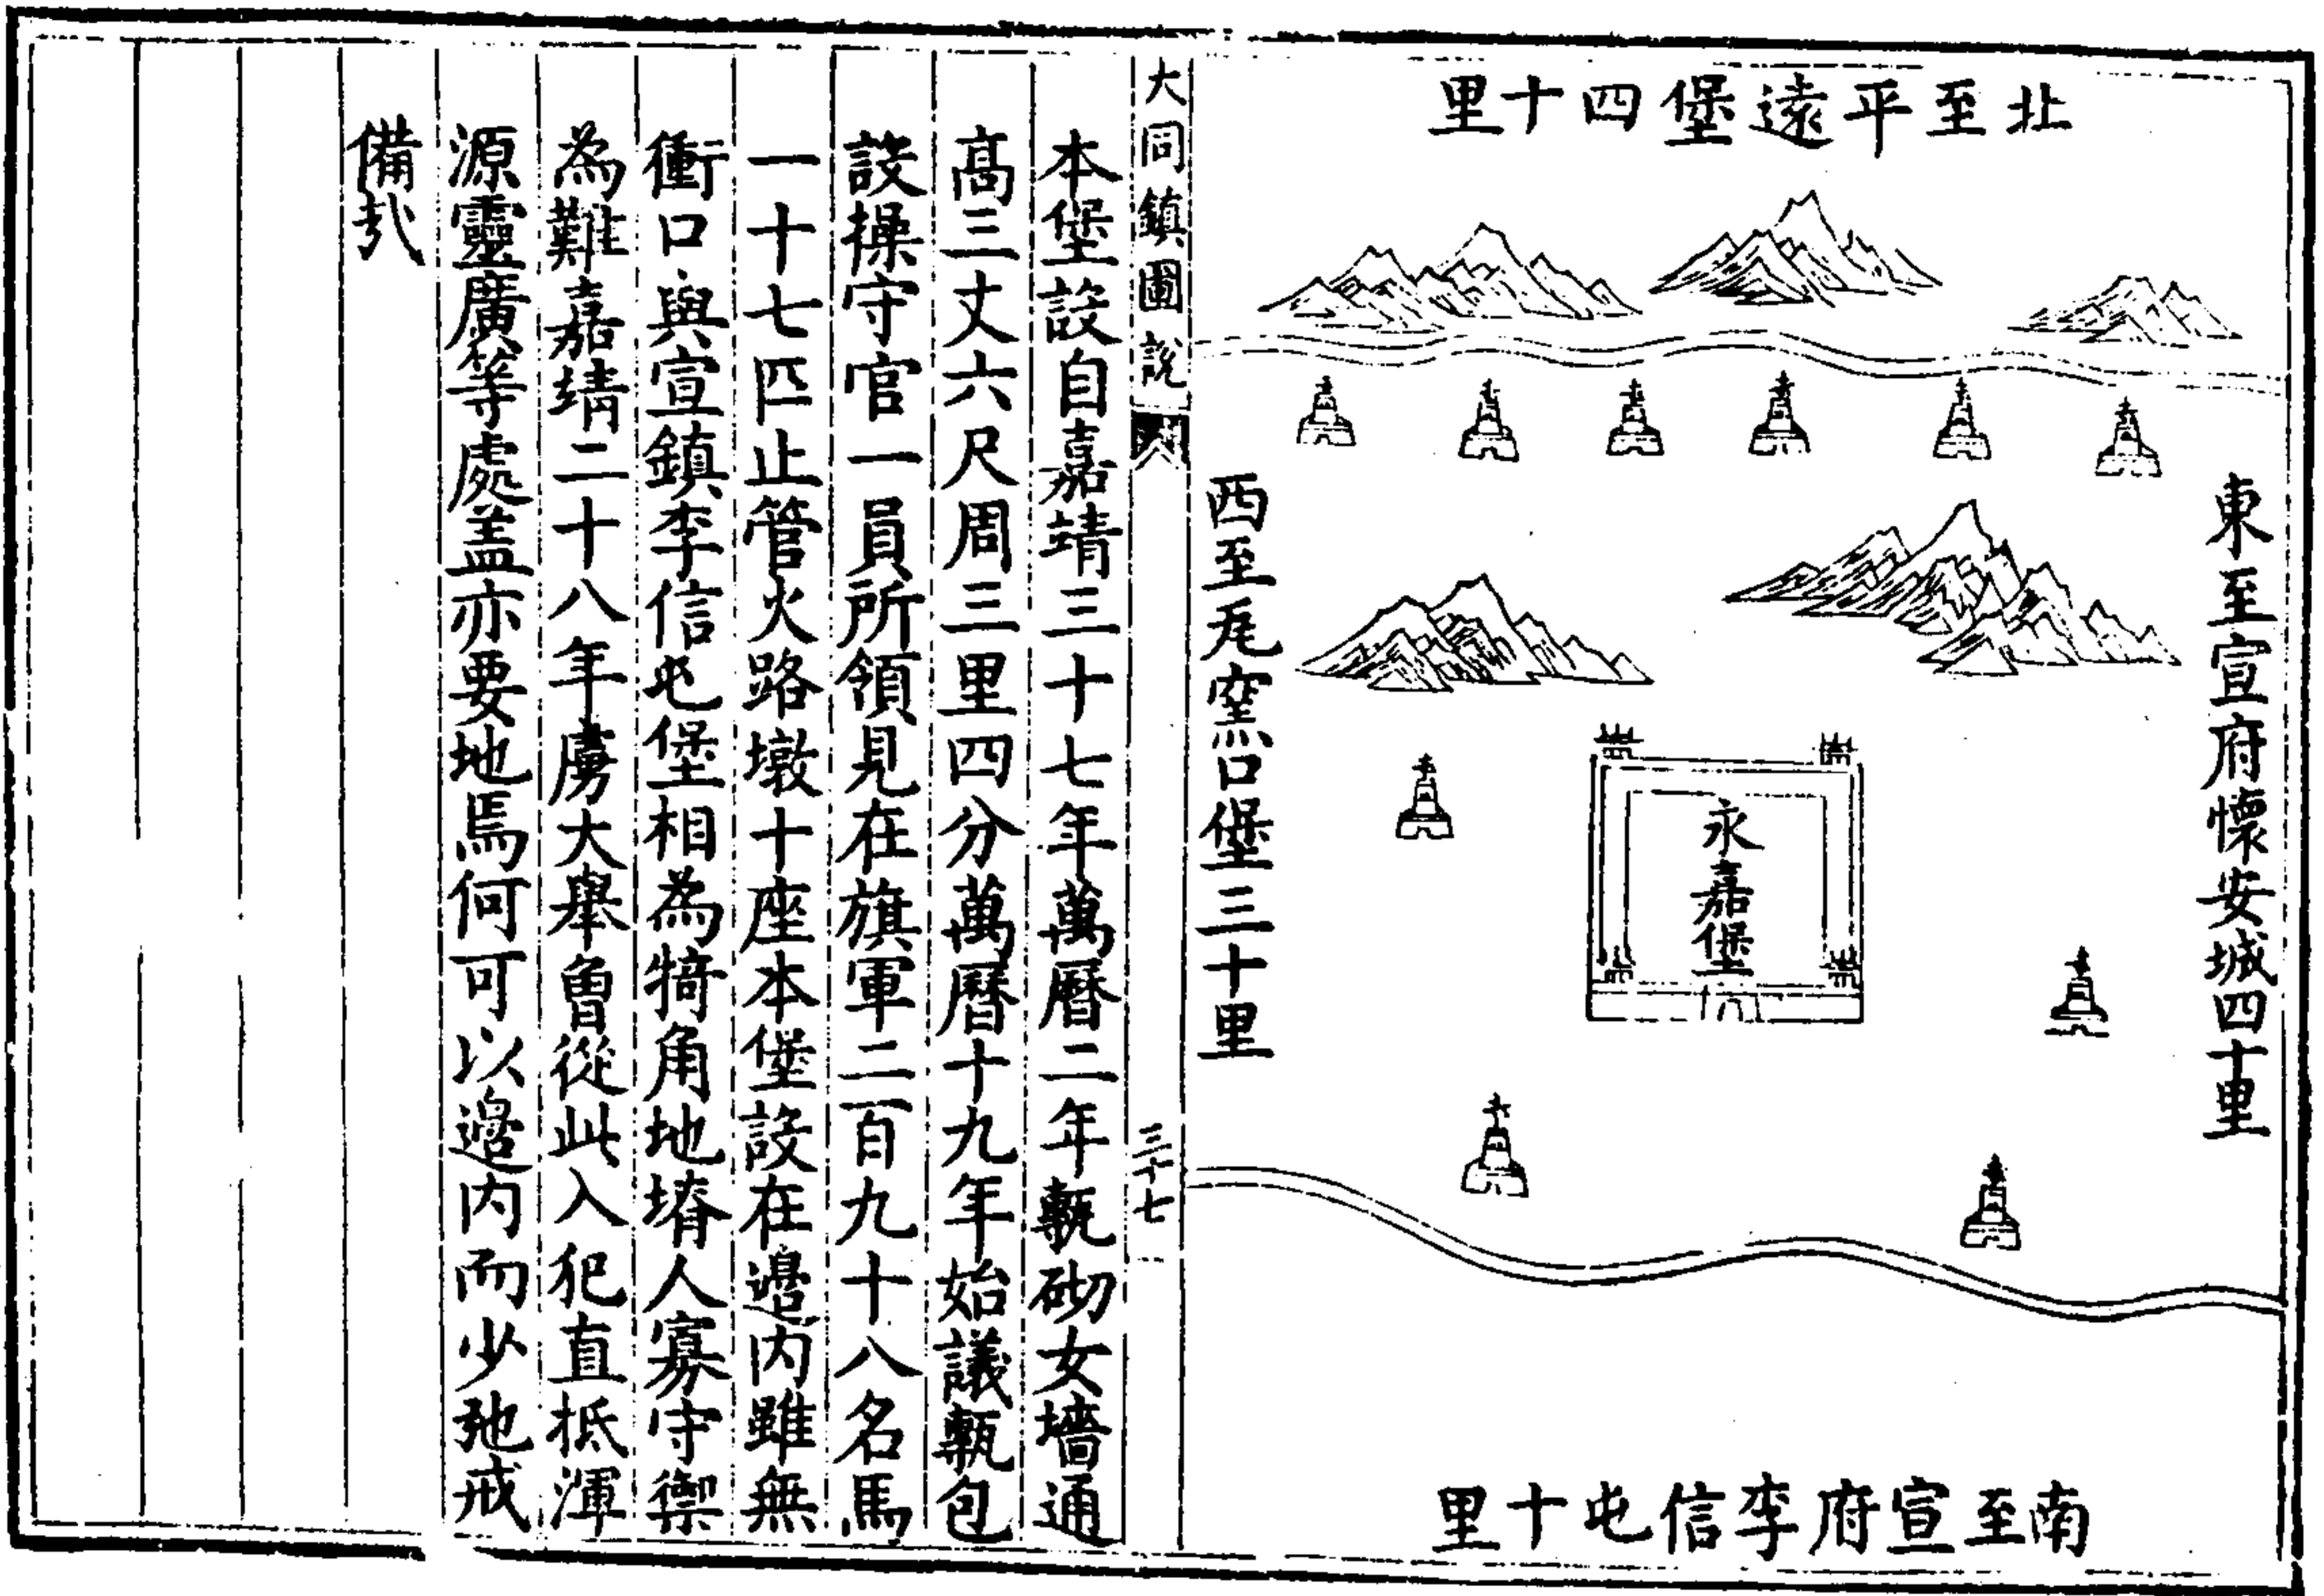 北至平遠堡四十里
東至宣府懷安城四十里
永嘉堡
西至瓦窯口堡三十里
南至宣府李信屯十里
大同鎮圖說
三十七
本堡設自嘉靖三十七年萬曆二年甎砌女墻通
高三丈六尺周三里四分萬曆十九年始議甎包
設操守官一員所領見在旗軍二百九十八名馬
一十七匹止管火路墩十座本堡設在邊内雖無
衝口與宣鎮李信屯堡相為犄角地塉人寡守禦
為難嘉靖二十八年虜大舉曾從此入犯直抵渾
源靈廣等處盖亦要地焉何可以邊内而少弛戒
備哉